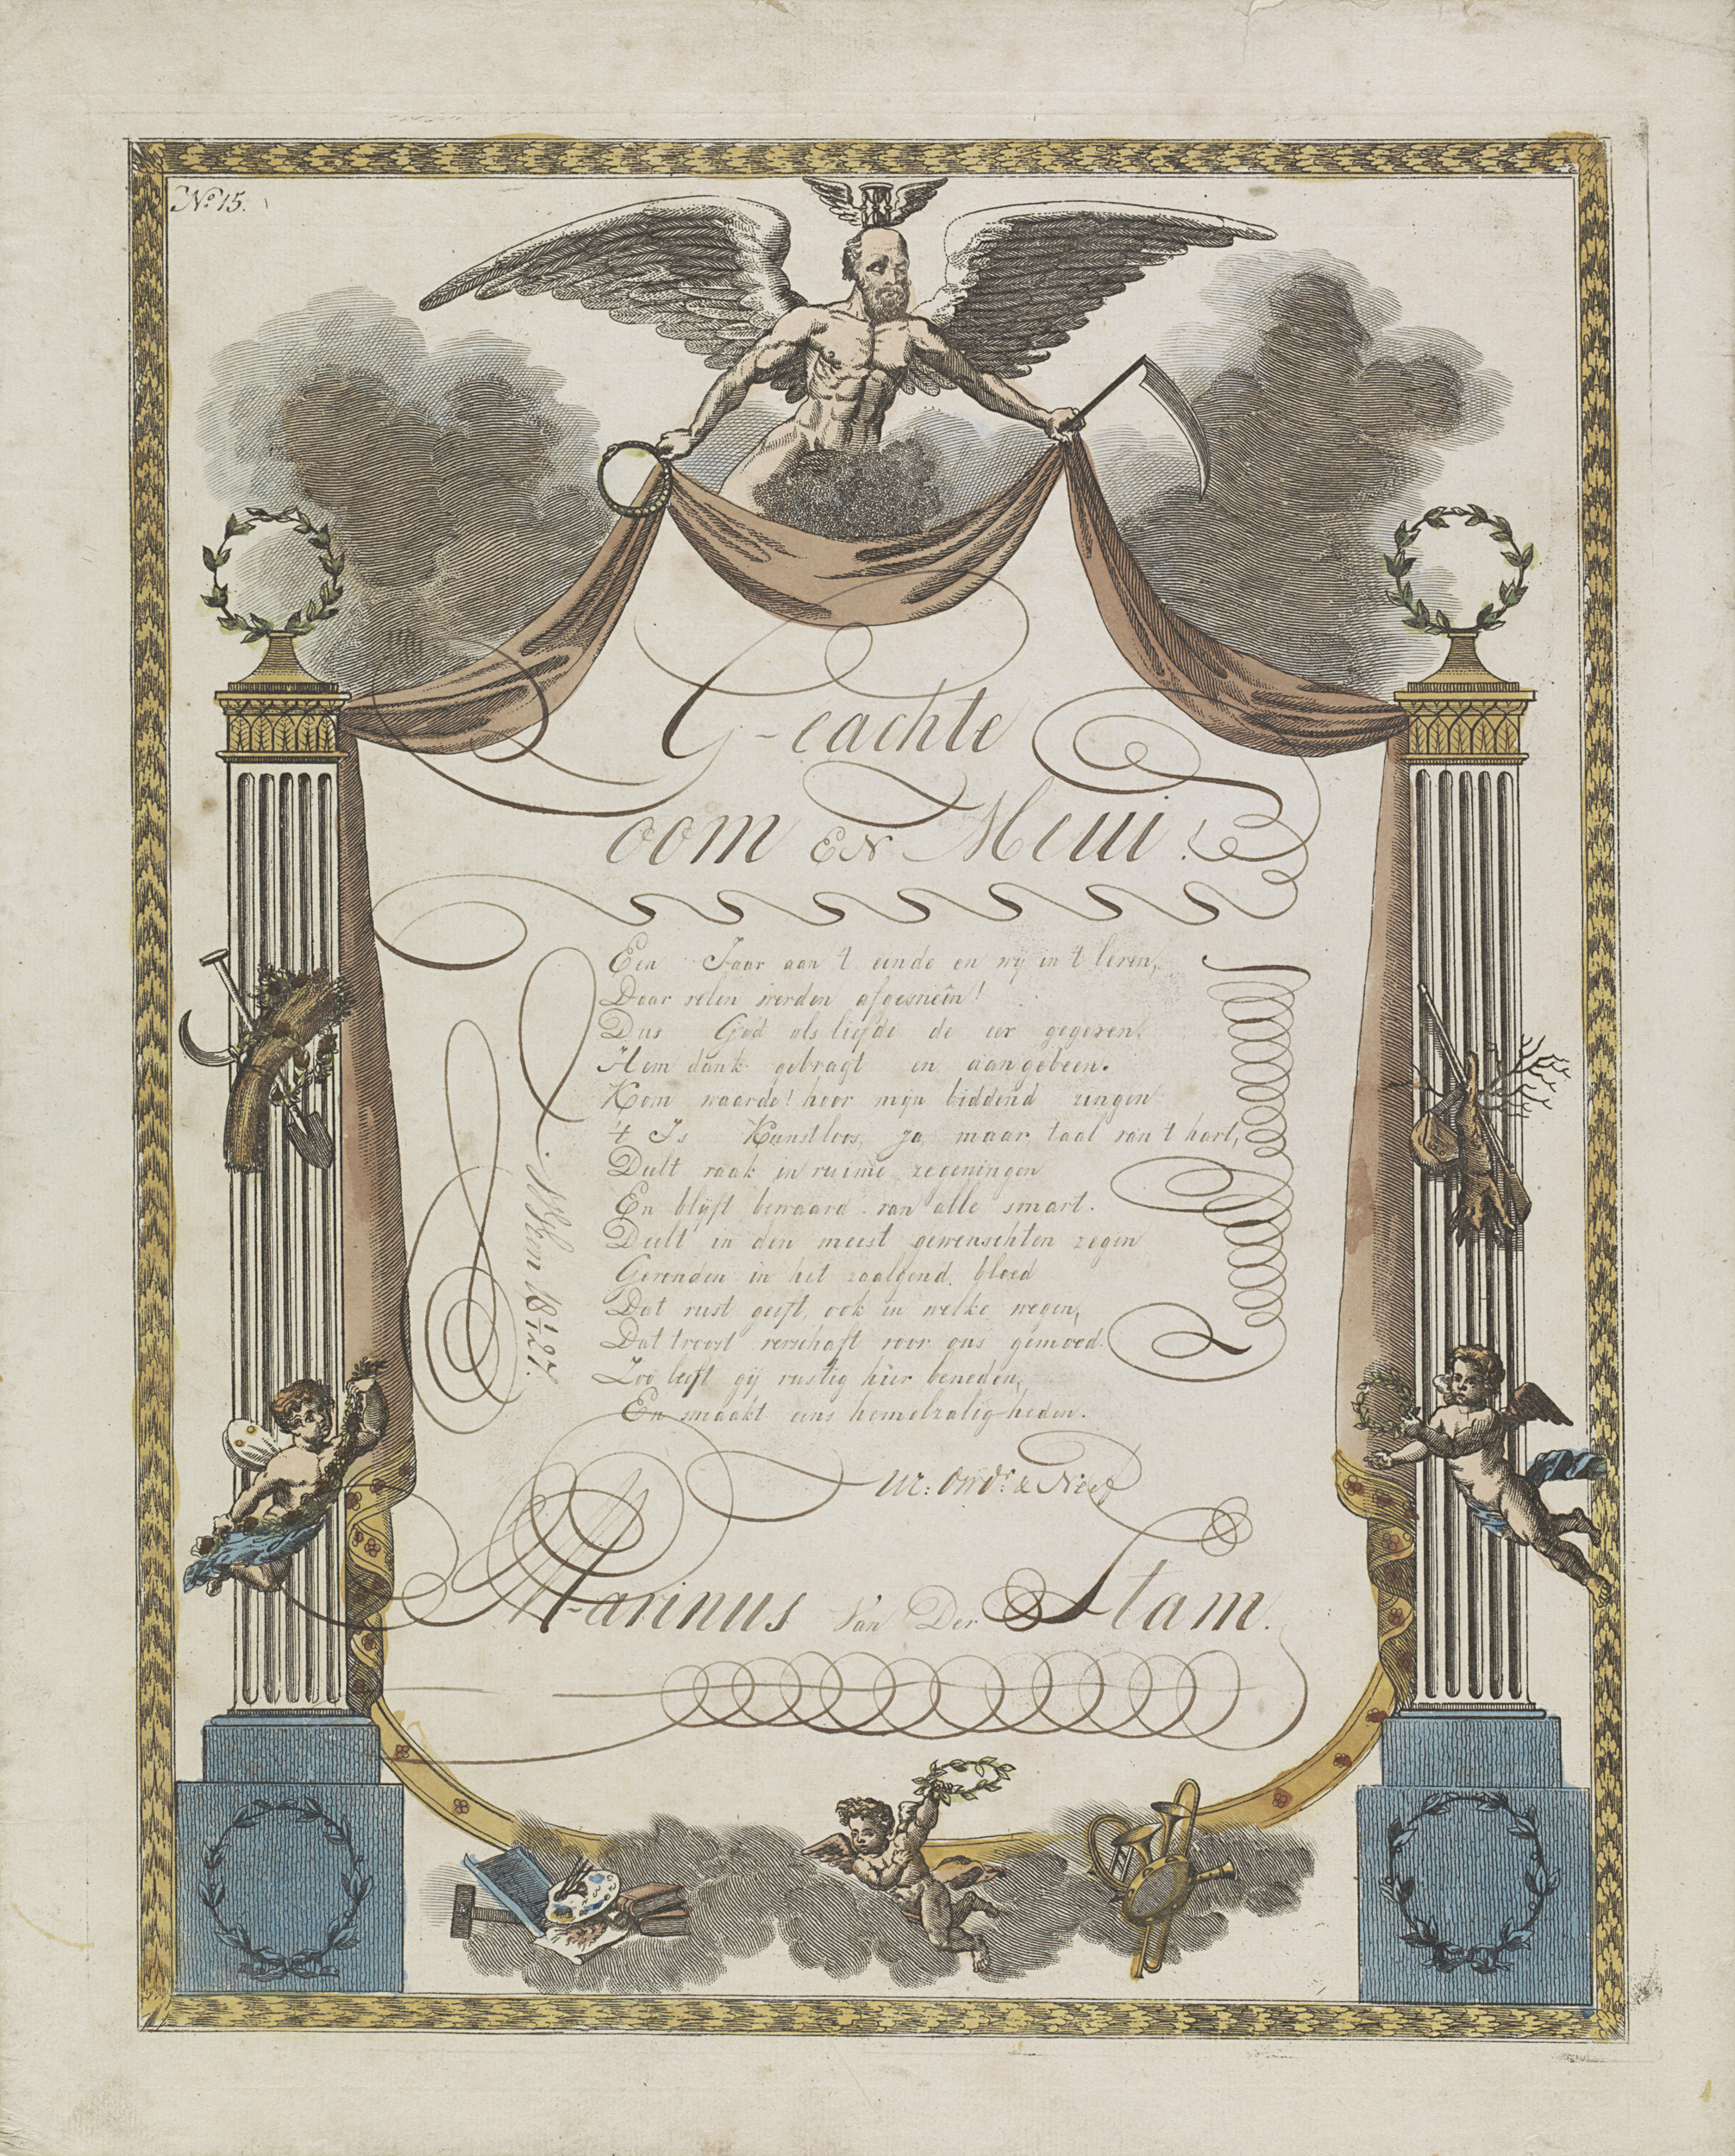 No 15.
G-eachte
oom EN Meui.
Een Jaar aan 't einde en wij in 't leven,
Daar velen werden afgesneên!
Dus God als liefde de eer gegeven,
Hem dank gebragt en aangebeen.
Kom waarde! hoor mijn biddend zingen
't Is Kunstloos, ja, maar taal van 't hart,
Deelt vaak in ruime zegeningen
En blijft bewaard van alle smart.
Deelt in den meest gewenschten zegen
Gevonden in het zaalgend bloed
Dat rust geeft, ook in welke wegen,
Dat troost verschaft voor ons gemoed.
Zoo leeft gij rustig hier beneden,
En smaakt eens hemelzaligheden.
1/1 1827.
Marinus Van Der Stam.